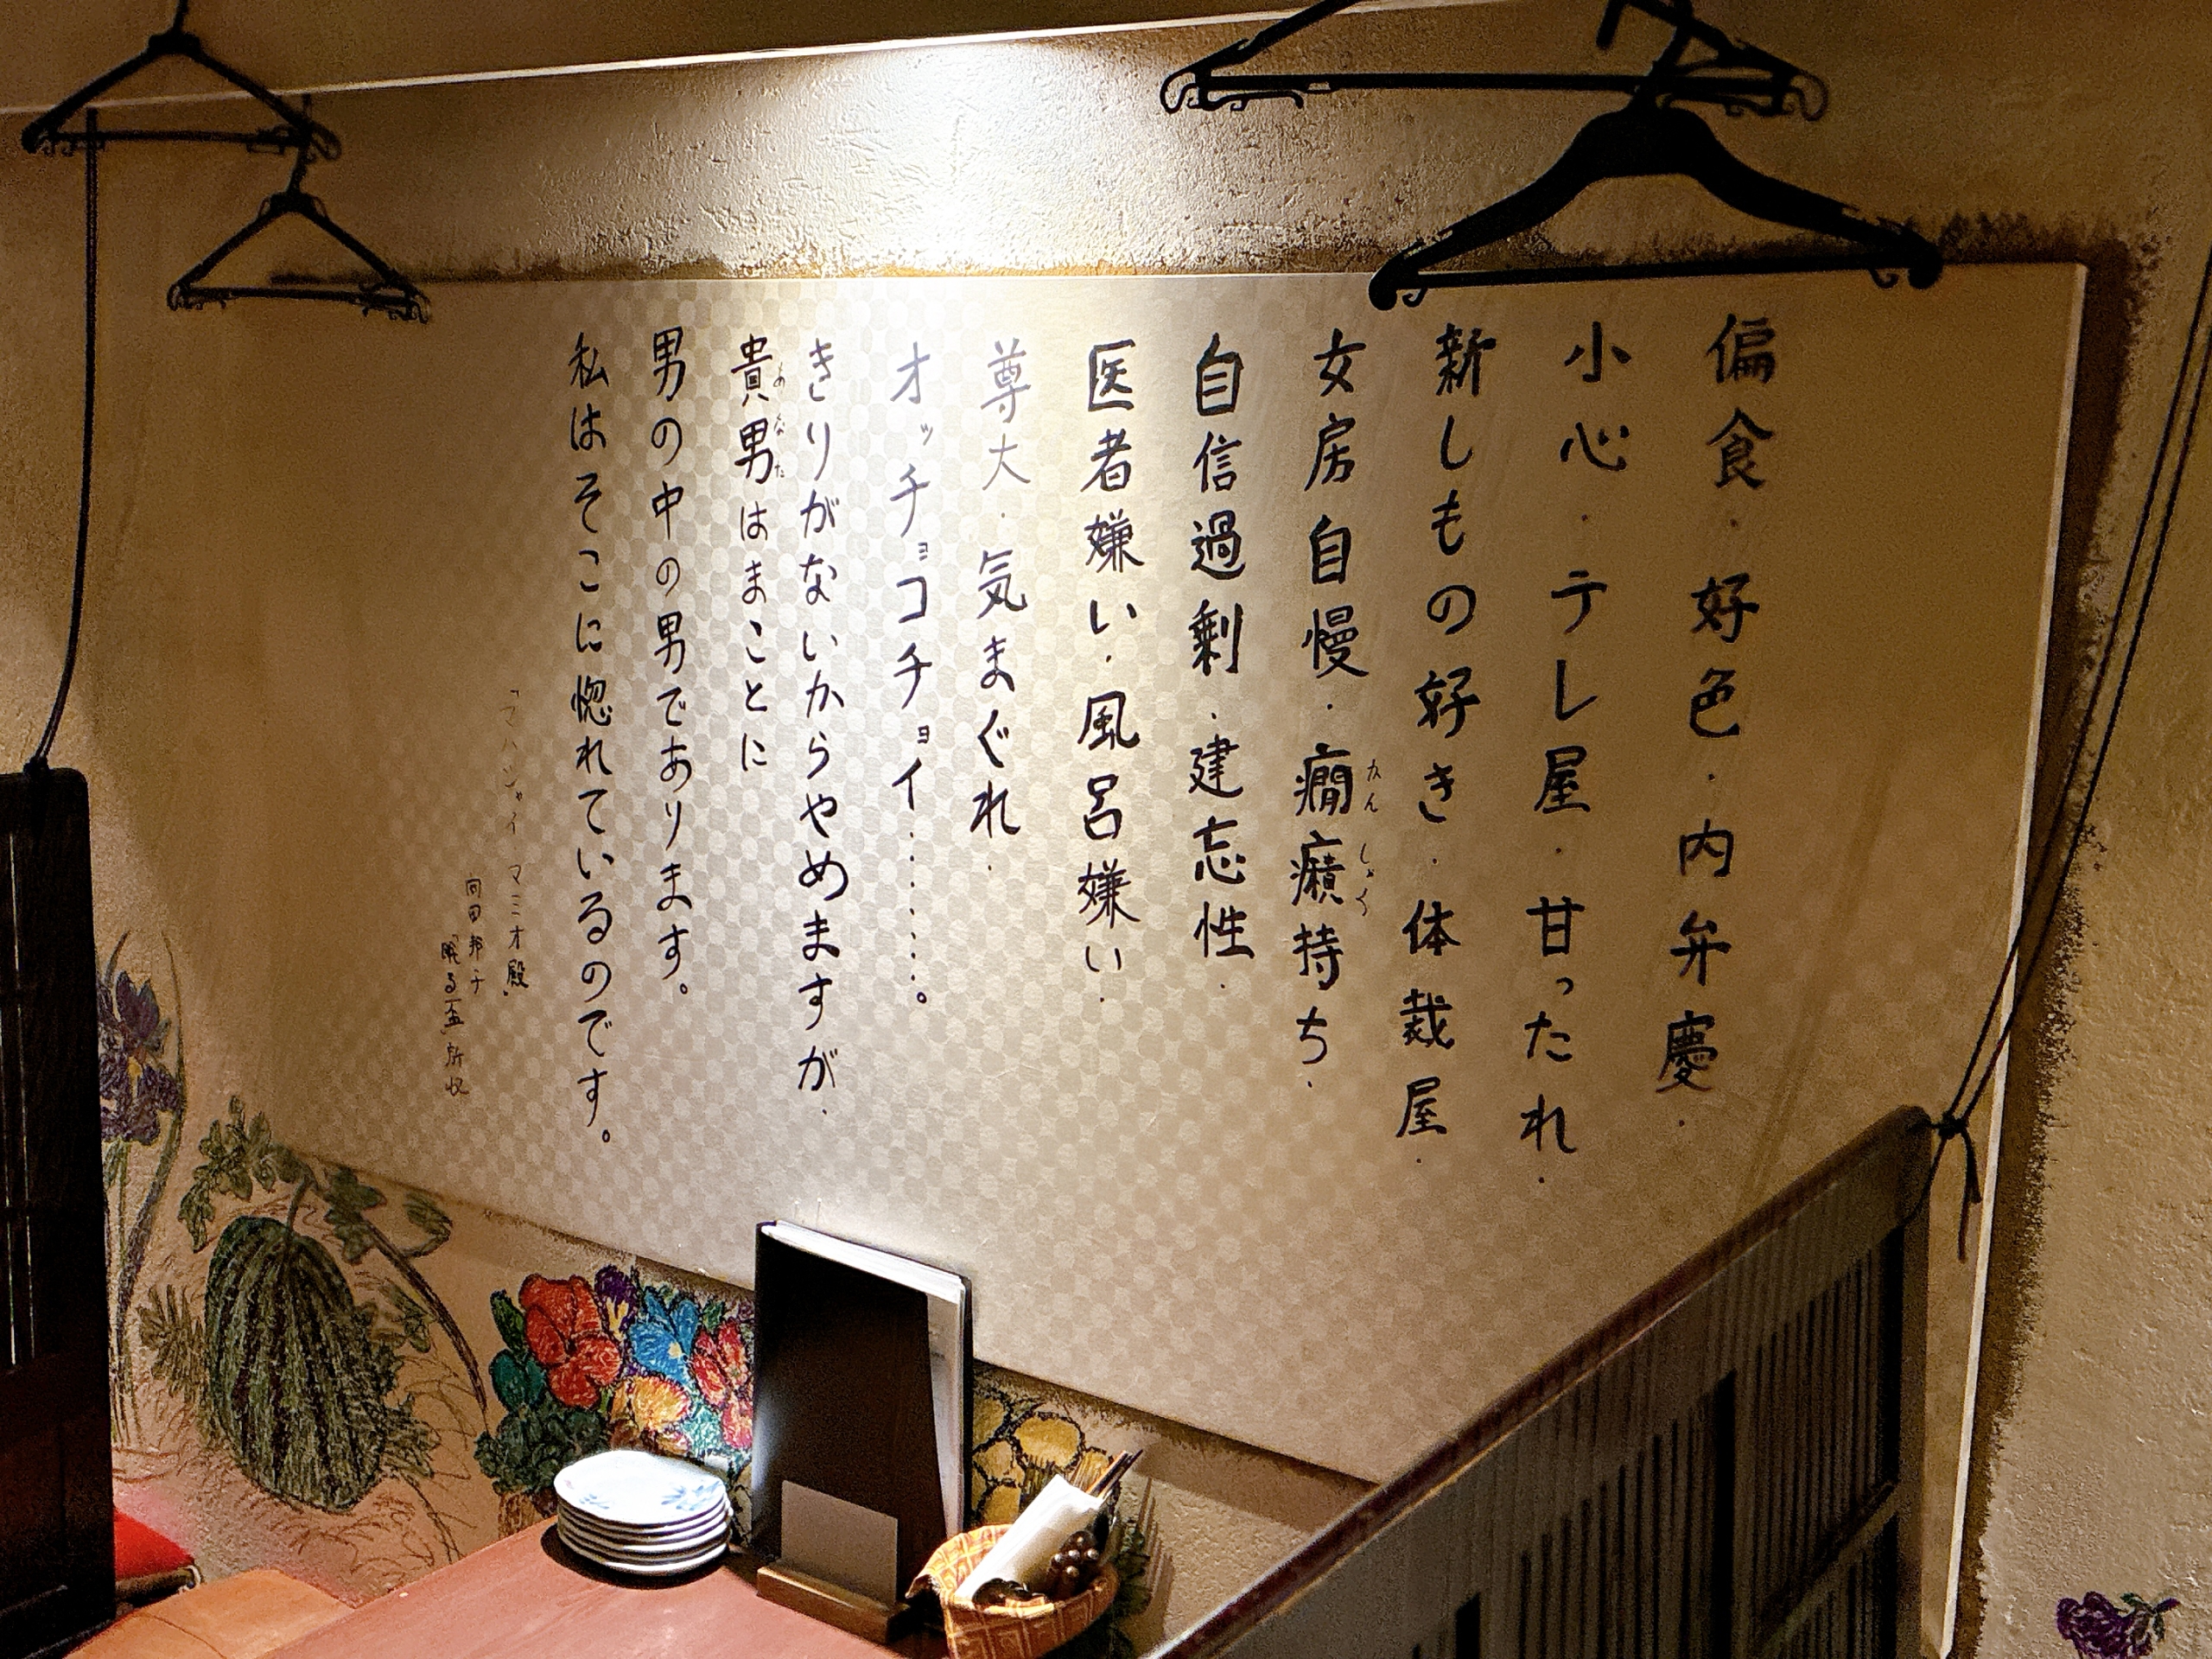 偏食・好色・内弁慶・
小心・テレ屋・甘ったれ・
新しもの好き・体裁屋・
女房自慢・癇癪持ち・
かんしゃく
自信過剰・建忘性・
医者嫌い・風呂嫌い・
尊大・気まぐれ・
オッチョコチョイ………。
きりがないからやめますが・
貴男はまことに
あなた
男の中の男であります。
私はそこに惚れているのです。
「マハシャイ マミオ殿」
向田邦子
「眠る盃」所収